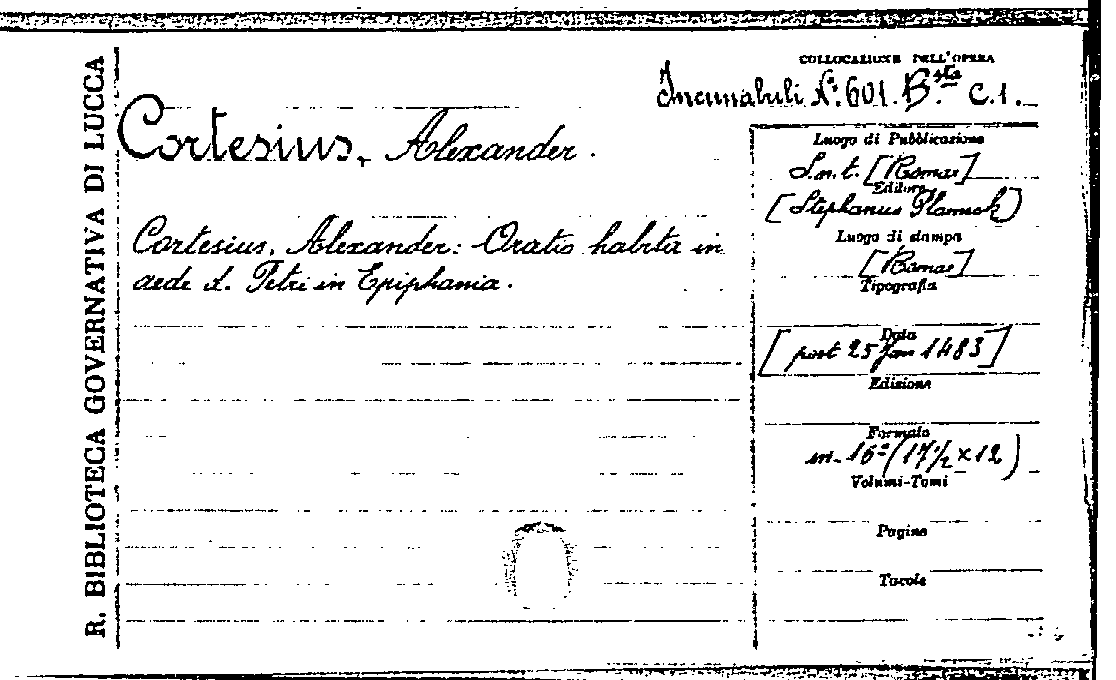 R. BIBLIOTECA GOVERNATIVA DI LUCCA
COLLOCAZIONE DELL'OPERA
Incunabuli N.º 601. B.sta C.1.
Cortesius, Alexander.
Cortesius, Alexander: Oratio habita in
aede s. Petri in Epiphania.
Luogo di Pubblicazione
S.n.t. [Romae]
Editore
[Stephanus Plannck]
Luogo di stampa
[Romae]
Tipografia
Data
[post 25 Jan 1483]
Edizione
Formato
in-16º (17½ × 12)
Volumi-Tomi
Pagine
Tavole